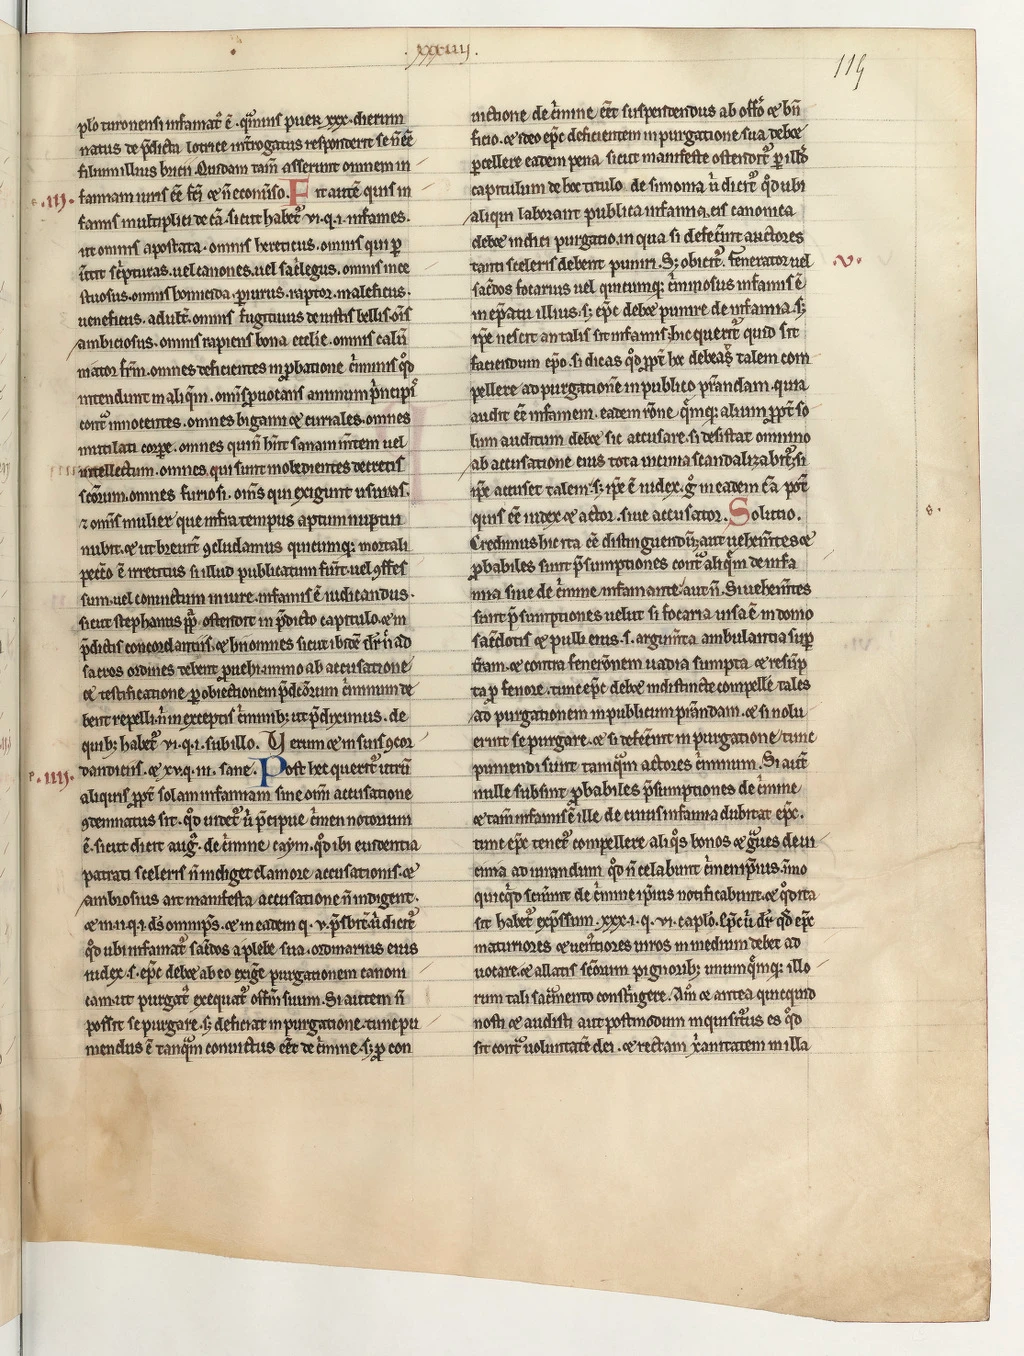 .xxxiiij.
115
plo turonensi infamat᷒ ē. q̄muis puer xxx. dierum
natus de p̄dicta lotrice int̄rogatus responderit se ñ eē
filium illius bricii. Quidam tam̄ asserunt omnem in
.iij.
famiam iuris eē fc̄i & ñ econuŭso. Fit autē quis in
famis multiplici de cā. sicut habet᷒ vi. q. i. infames.
ut omnis apostata. omnis hereticus. omnis qui
sc̄pturas. uel canones. uel sac̄legus. omnis ince
stuosus. omnis homicida. piurus. raptor. maleficus.
ueneficus. adult̄. omnis fugitiuus de iustis bellis. oīs
ambitiosus. omnis rapiens bona ecclīe. omnis calū
niator fr̄m. omnes deficientes in ꝓbatione c̄minis qᵒd
intendunt in aliqm̄. omīs puocans animum p̄ncipi᷒
cont᷒ innocentes. omnes bigami & curiales. omnes
mutilati corꝑe. omnes qui ñ hn̄t sanam m̄tem uel
intellectum. omnes qui sunt inobedientes decretis
sc̄orum. omnes furiosi. om̄s qui exigunt usuras.
⁊ om̄s mulier que infra tempus aptum nuptiis
nubit. & ut breuit᷒ ꝯcludamus quicumqꝫ mortali
pecc̄o ē irretitus si illud publicatum fūit. uel ꝯfes
sum. uel conuictum in iure. infamis ē iudicandus.
sicut stephanus pp̄ ostendit in p̄dicto capitulo. & in
p̄dictis concordantiis. & hii omnes sicut ibid̄ dr̄. ñ ad
sacros ordines debent puehi. immo ab accusatione
& testificatione ꝑ obiectionem p̄dc̄orum c̄minum de
bent repelli. ñ in exceptis c̄minibꝫ ut p̄diximus. de
quibꝫ habet᷒ vi. q. i. sub illo. Verum & in suis ꝯcor
.iiij.
dantiis. & xv. q. iii. sane. Post hec querit᷒ utrū
aliquis ꝓpt᷒ solam infamiam sine om̄i accusatione
ꝯdemnatus sit. qᵒd uidet᷒ ŭ p̄cipue c̄men notorium
ē. sicut dicit aug᷒. de c̄mine cayni. qᵒd ibi euidentia
patrati sceleris ñ indiget clamore accusationis. &
ambrosius ait manifesta accusatione ñ indigent.
& in ii. q. i. ds̄ omnips̄. & in eadem q. v. p̄sbit̄. ŭ dicit᷒
qᵒd ubi infamat᷒ sac̄dos a plebe sua. ordinarius eius
iudex. s. epc̄ debꝫ ab eo exiḡe purgationem canoni
cam. ut purgat᷒ exequat᷒ offm̄ suum. Si autem ñ
possit se purgare. sꝫ deficiat in purgatione. tunc pu
niendus ē tanqm̄ conuictus eēt de c̄mine. sꝫ ꝓ con
uictione de c̄mine eēt suspendendus ab offō & bn̄
ficio. & ideo epc̄ deficientem in purgatione sua debꝫ
ꝑcellere eadem pena. sicut manifeste ostendit᷒ ꝑ illud
capitulum de hoc titulo. de simonia ŭ dicit᷒ qᵒd ubi
aliqui laborant publica infamia. eis canonica
debꝫ indici purgatio. in qua si defec̄int auctores
v.
tanti sceleris debent puniri. Sꝫ obicit᷒. fenerator uel
sac̄dos focarius uel quicumqꝫ c̄minosus infamis ē
in ep̄atu illius. sꝫ epc̄ debꝫ punire de infamia. sꝫ
ip̄e nescit an talis sit infamis. hic querit᷒ quid sit
faciendum epō. si dicas qᵒd ꝓpt᷒ hoc debeas talem com
pellere ad purgationē in publico p̄standam. quia
audit eē infamem. eadem rōne. q̄mqꝫ alium ꝓpt᷒ so
lum auditum debꝫ sic accusare. si desistat omnino
ab accusatione eius tota uicinia scandalizabit᷒. si
ip̄e accuset talem. sꝫ ip̄e ē iudex. g̊ in eadem cā pōt
quis eē iudex & actor. siue accusator. Solutio.
Credimus hic ita eē distinguendū. aut uehem̄tes &
ꝓbabiles sunt p̄sumptiones cont᷒ aliqm̄ de infa
mia siue de c̄mine infamante. aut ñ. Si uehem̄tes
sunt p̄sumptiones uelut si focaria uisa ē in domo
sac̄dotis & pulli eius. s. argum̄ta ambulantia sup̄
tram. & contra fen̄onem uadia sumpta & resūp
ta ꝓ fenore. tunc epc̄ debꝫ indistincte compelle᷒ tales
ad purgationem in publicum p̄standam. & si nolu
erint se purgare. & si defec̄int in purgatione tunc
puniendi sunt tamqm̄ actores c̄minum. Si aut̄
nulle subsint ꝓbabiles p̄sumptiones de c̄mine
& tam̄ infamis ē ille de cuius infamia dubitat epc̄.
tunc epc̄ tenet᷒ compellere aliqᵒs bonos & g̊ues de ui
cinia ad iurandum qᵒd ñ celabunt c̄men ip̄ius. īmo
quicqᵈ sciunt de c̄mine ip̄ius notificabunt. & qᵒd ita
sit habet᷒ exp̄ssum. xxxi. q. vi. caplō. Epc̄. ŭ dr̄. qᵒd epc̄
maturiores & ueriores uiros in medium debet ad
uocare. & allatis sc̄orum pignoribꝫ unum q̄mqꝫ illo
rum tali sac̄mento const̄ngere. Am̄ & antea quicquid
nosti & audisti aut postmodum inquisit᷒us es qᵒd
sit cont᷒ uoluntatē dei. & rectam xp̄ianitatem in illa